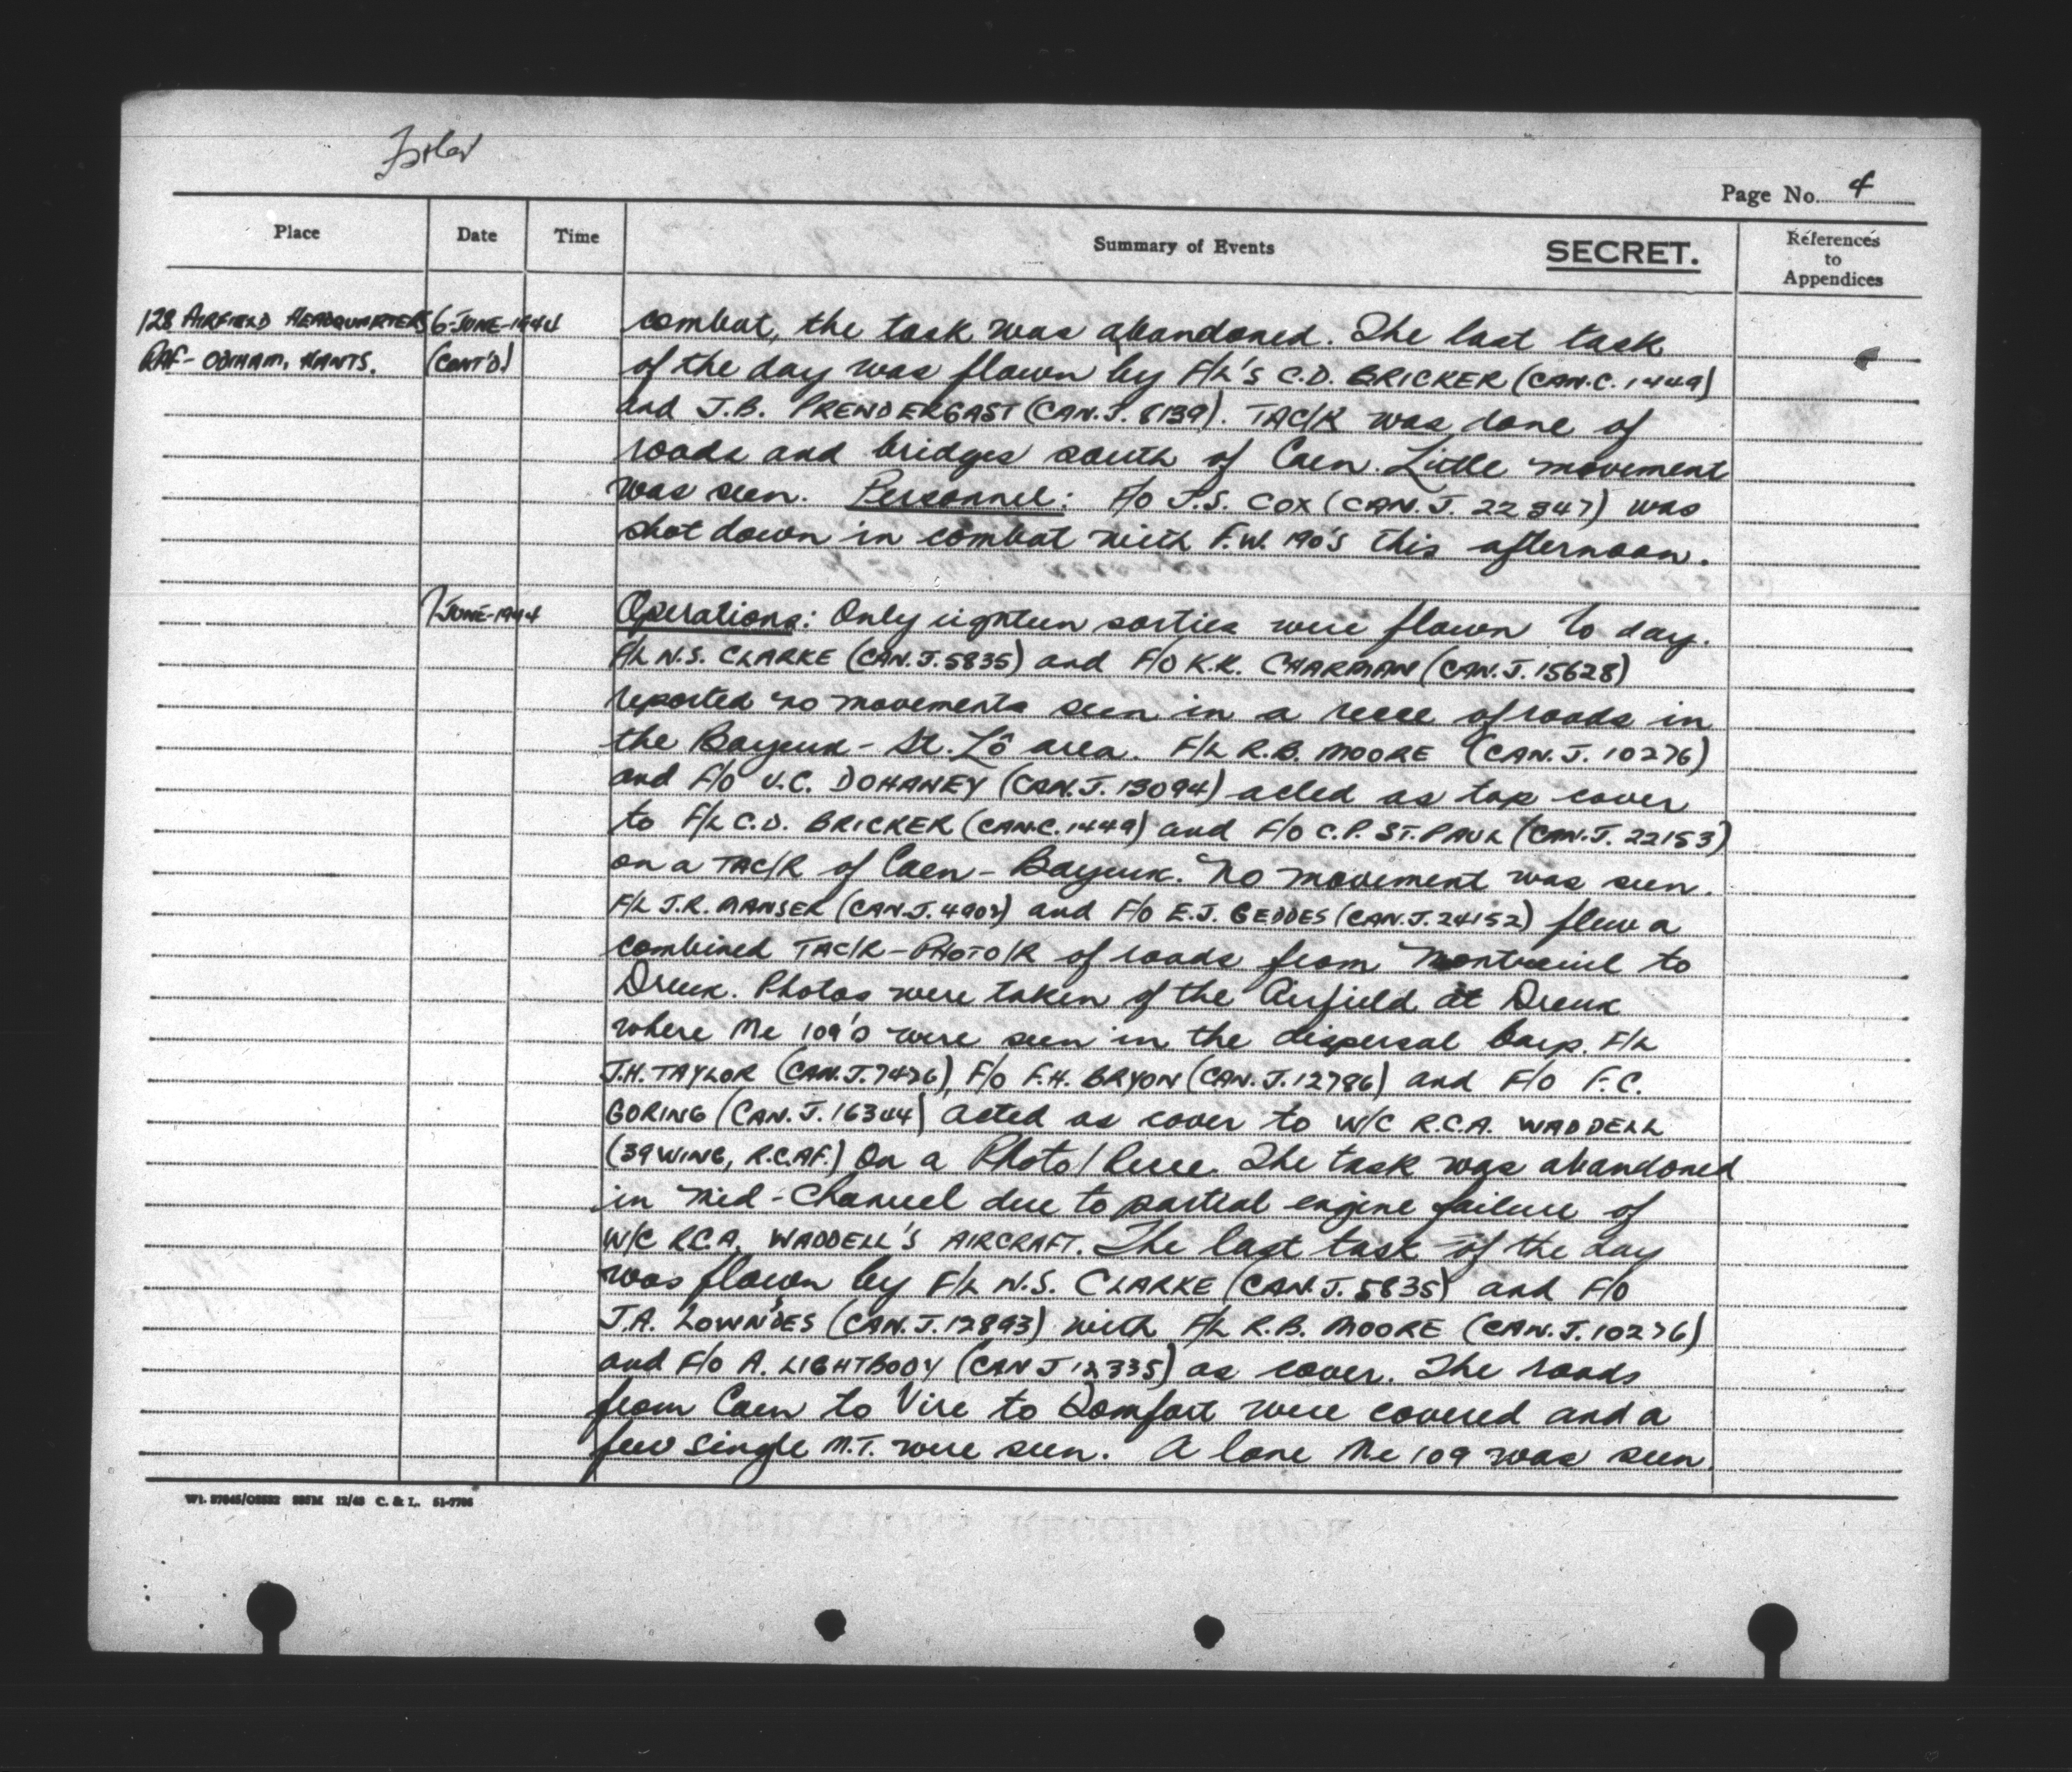 Page No. 4
Place Date Time Summary of Events SECRET. References to Appendices
128 AIRFIELD HEADQUARTERS 6-JUNE-1944 combat, the task was abandoned. The last task
RAF-ODIHAM, HANTS. (CONT'D) of the day was flown by F/L'S C.D. BRICKER (CAN.C. 1449)
and J.B. PRENDERGAST (CAN.J. 8139). TAC/R was done of
roads and bridges south of Caen. Little movement
was seen. Personnel: F/O J.S. COX (CAN.J. 22847) was
shot down in combat with F.W. 190's this afternoon.
7-JUNE-1944 Operations: Only eighteen sorties were flown to day.
F/L N.S. CLARKE (CAN.J.5835) and F/O K.K. CHARMAN (CAN.J.15628)
reported no movements seen in a recce of roads in
the Bayeux - St. Lô area. F/L R.B. MOORE (CAN.J. 10276)
and F/O V.C. DOHANEY (CAN.J. 13094) acted as top cover
to F/L C.D. BRICKER (CAN.C. 1449) and F/O C.P. ST.PAUL (CAN.J. 22153)
on a TAC/R of Caen - Bayeux. No movement was seen.
F/L J.R. MANSER (CAN.J. 4907) and F/O E.J. GEDDES (CAN.J. 24152) flew a
combined TAC/R - PHOTO/R of roads from Montreuil to
Dreux. Photos were taken of the Airfield at Dreux
where Me 109's were seen in the dispersal bays. F/L
J.H. TAYLOR (CAN.J. 7426), F/O F.H. BRYON (CAN.J. 12786) and F/O F.C.
GORING (CAN.J. 16344) acted as cover to W/C R.C.A. WADDELL
(39 WING, R.C.A.F.) On a Photo/Recce. The task was abandoned
in Mid-Channel due to partial engine failure of
W/C R.C.A. WADDELL'S AIRCRAFT. The last task of the day
was flown by F/L N.S. CLARKE (CAN.J. 5835) and F/O
J.A. LOWNDES (CAN.J. 12893) with F/L R.B. MOORE (CAN.J. 10276)
and F/O A. LIGHTBODY (CAN J 12335) as cover. The roads
from Caen to Vire to Domfort were covered and a
few single M.T. were seen. A lone Me 109 was seen.
C. & L.